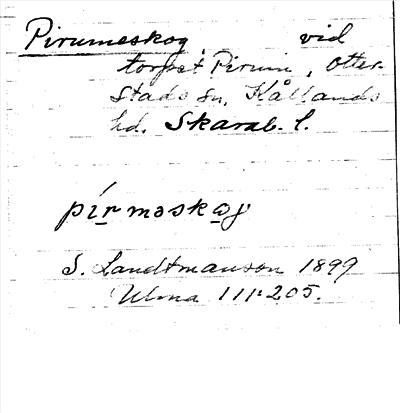 Pirumeskog, vid
torpet Pirum, Otter-
stads sn, Kållands
hd. Skarab. l.
pírməskog
S. Landtmanson 1899
Ulma 111:205.